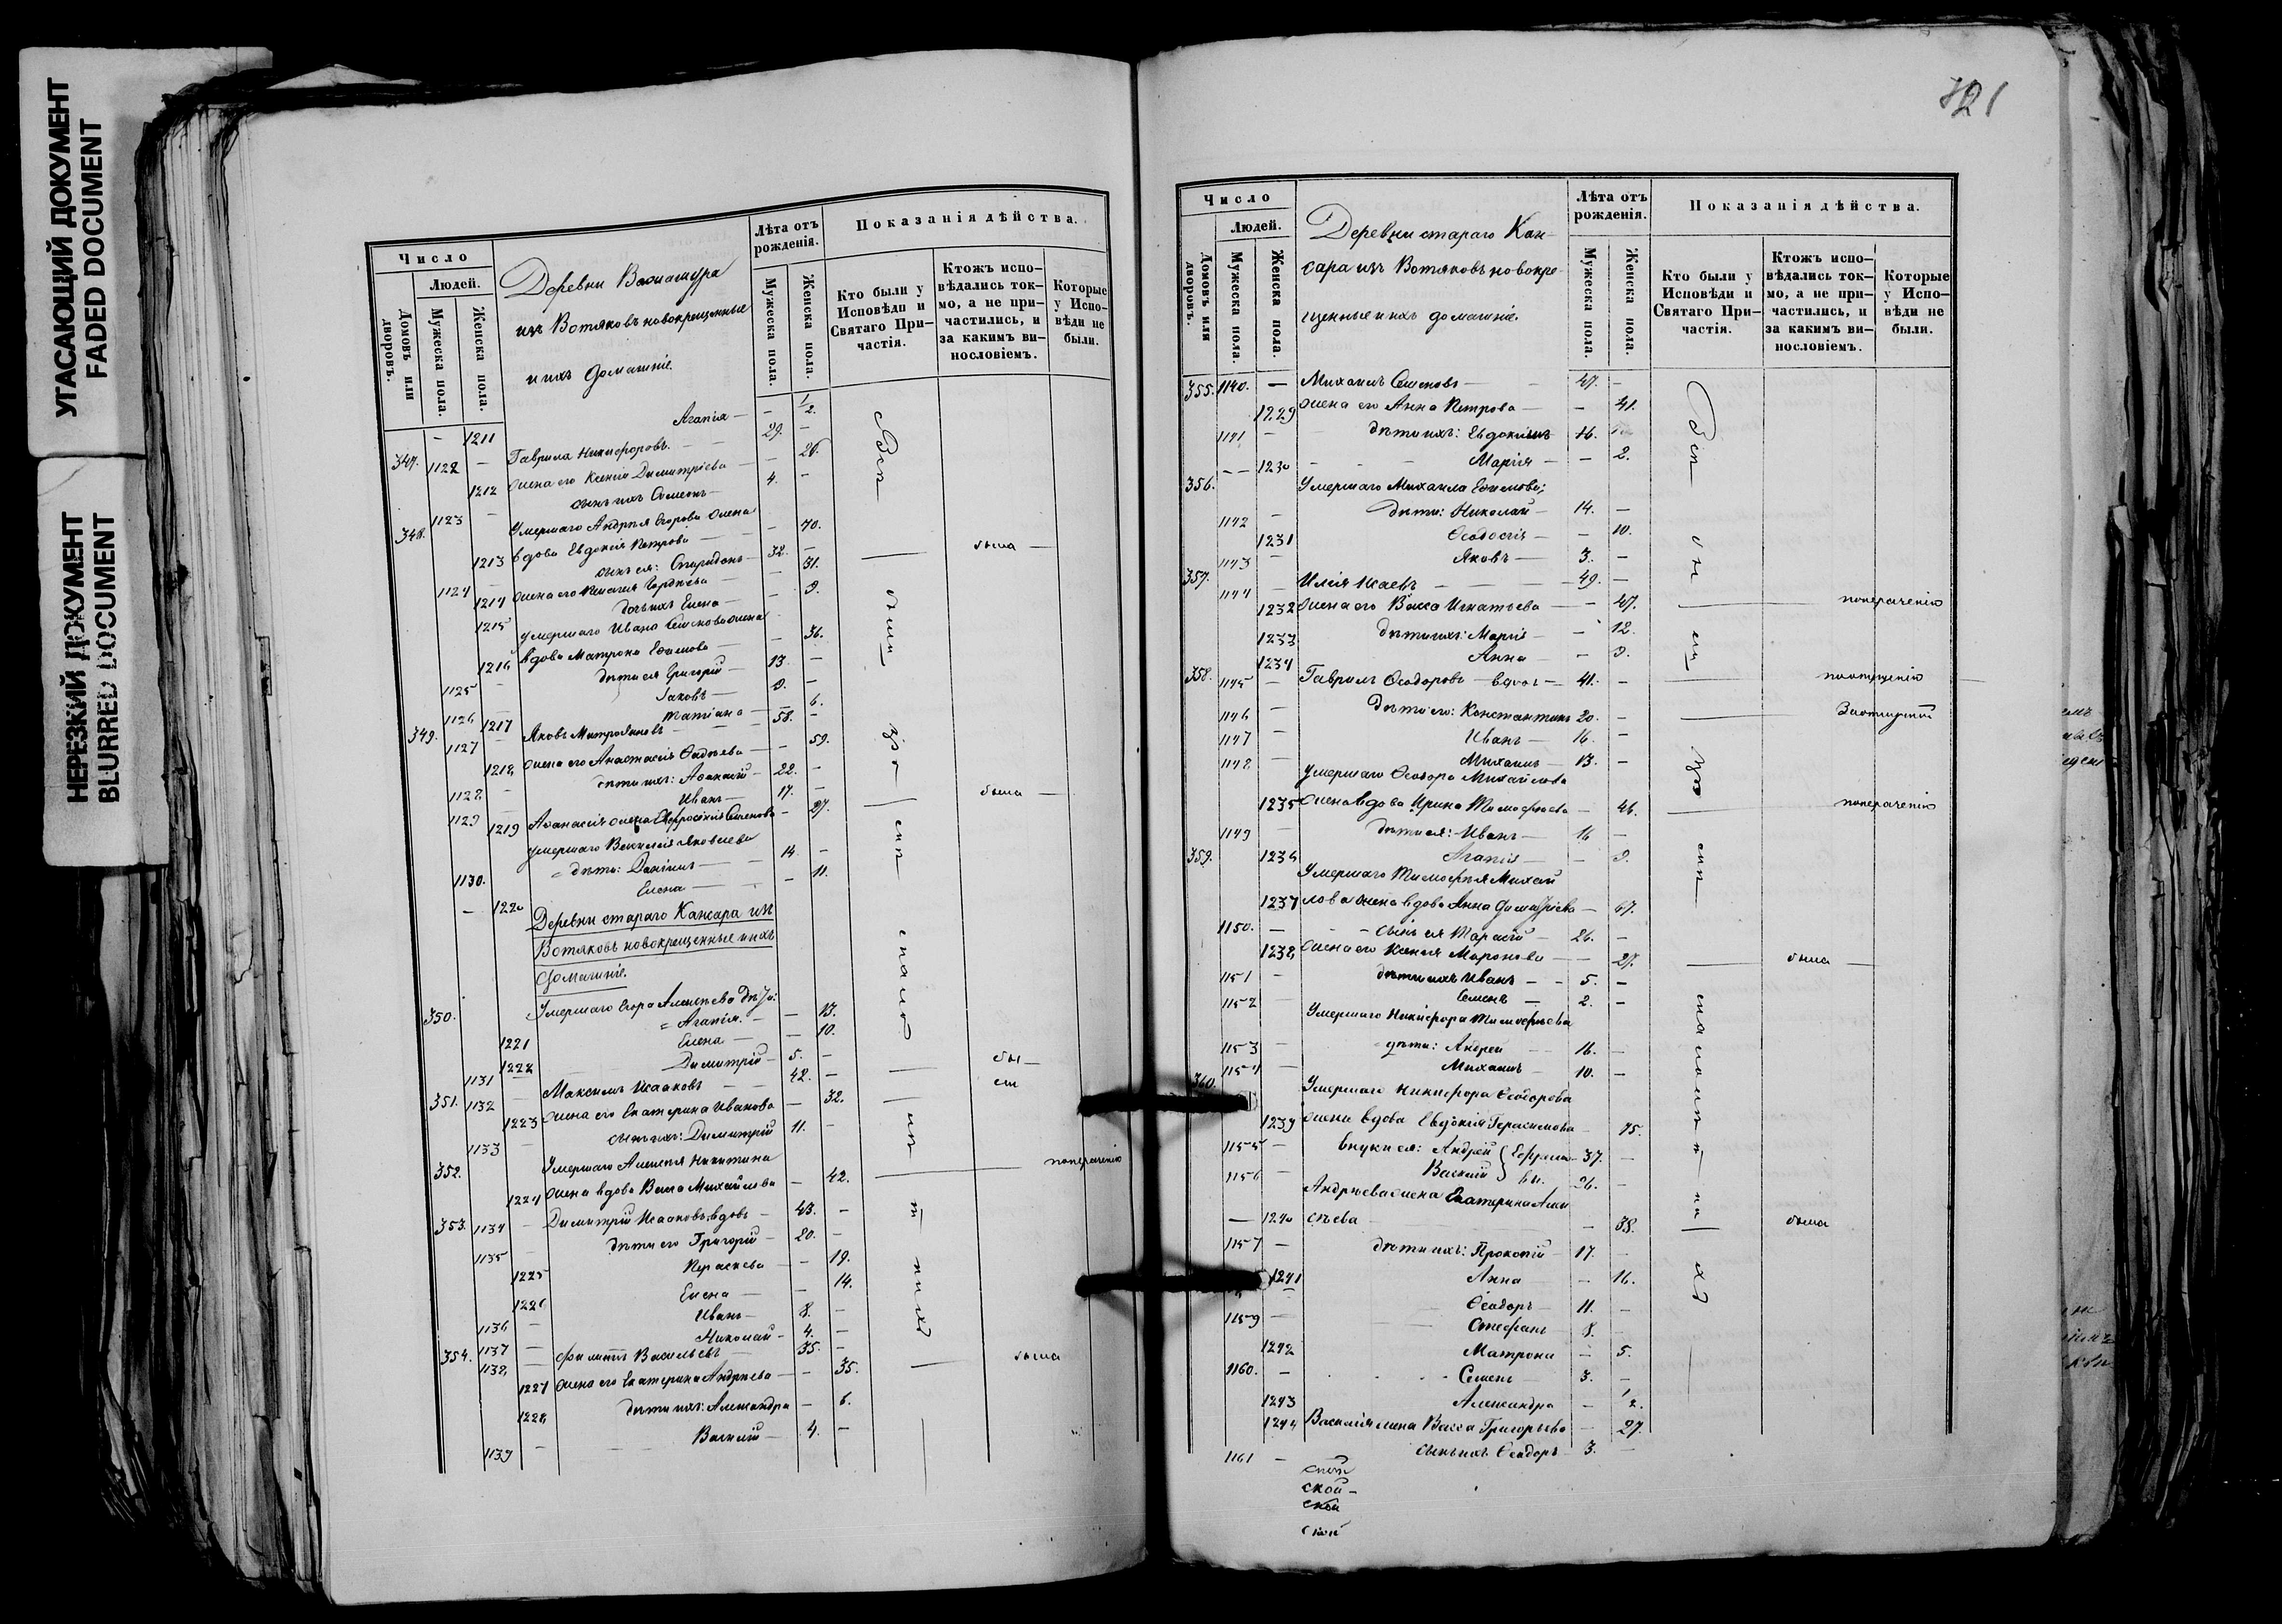 УГАСАЮЩИЙ ДОКУМЕНТ
FADED DOCUMENT
НЕРЕЗКИЙ ДОКУМЕНТ
BLURRED DOCUMENT
Число
Людей.
Домовъ или дворовъ.
Мужеска пола.
Женска пола.
Деревни
изъ Вотяковъ новокрещенные
и ихъ домашніе.
Лѣта отъ рожденія.
Мужеска пола.
Женска пола.
Показанія дѣйства.
Кто были у Исповѣди и Святаго Причастія.
Ктожъ исповѣдались токмо, а не причастились, и за какимъ винословіемъ.
Которые у Исповѣди не были.
— 1211 Агапія — — 1/2.
347. 1122 — Гаврила Никифоровъ — 29. —
1212 жена его Ксенія Димитріева — — 26.
1123 — сынъ ихъ Симеонъ — 4. —
348. Умершаго Андрея Егорова жена
1213 вдова Евдокія Петрова — — 70.
была —
1124 — сынъ ея: Спиридонъ — 32. —
1214 жена его Пелагея Гордѣева — — 31.
1215 дочь ихъ Елена — — 9.
умершаго Ивана Семенова жена
1216 вдова Матрона Ефимова — — 36.
1125 — дѣти ея Григорій — 13. —
1126 Іаковъ — 9. —
1217 Татіана — — 6.
349. 1127 — Яковъ Митрофановъ — 58. —
1218 жена его Анастасія Фадѣева — — 59.
1128 — дѣти ихъ: Аѳанасій — 22. —
1129 Иванъ — 17. —
1219 Аѳанасія жена Евфросинія Семенова — 27.
была —
умершаго Василія Яковлева
1130. дѣти: Даніилъ — 14. —
— 1220 Елена — — 11.
Деревни стараго Кансара изъ
Вотяковъ новокрещенные и ихъ
домашніе.
350. Умершаго Егора Алексѣева дѣти:
1221 Агапія. — — 13.
1222 Елена — — 10.
1131 — Димитрій — 5. —
351. 1132 — Максимъ Исааковъ — 42. —
бы—
ли
1223 жена его Екатерина Иванова — 32.
1133 — сынъ ихъ: Димитрій 11. —
352. Умершаго Алексѣя Никитина
1224 жена вдова Васса Михайлова — 42.
по нераченію
353. 1134 — Димитрій Исааковъ вдовъ — 43. —
1135 — дѣти его Григорій — 20. —
1225 Параскева — — 19.
1226 Елена — — 14.
1136 — Иванъ — 8. —
1137 — Николай — 4. —
354. 1138 Филиппъ Васильевъ — 35. —
1227 жена его Екатерина Андрѣева — — 35.
была
1228 дѣти ихъ: Александра — 6.
1139 — Василій — 4. —
Всѣ
были
у
испо
121
Число
Людей.
Домовъ или дворовъ.
Мужеска пола.
Женска пола.
Деревни стараго Кан-
сара изъ Вотяковъ новокре-
щенные и ихъ домашніе.
Лѣта отъ рожденія.
Мужеска пола.
Женска пола.
Показанія дѣйства.
Кто были у Исповѣди и Святаго Причастія.
Ктожъ исповѣдались токмо, а не причастились, и за какимъ винословіемъ.
Которые у Исповѣди не были.
355. 1140. — Михаилъ Семеновъ — 47. —
1229 жена его Анна Петрова — — 41.
1141 — дѣти ихъ: Евдокимъ 16.
— 1230 Марія — — 2.
356. Умершаго Михаила Ефимова;
1142 — дѣти: Николай — 14. —
1231 Ѳеодосія — — 10.
1143 — Яковъ — 3. —
357. 1144 — Илія Исаевъ — 49. —
1232 жена его Васса Игнатьева — — 47.
по нераченію
1233 дѣти ихъ: Марія — — 12.
1234 Анна — — 9.
358. 1145 — Гавріилъ Ѳеодоровъ — вдовъ — 41. —
по опущенію
1146 — дѣти его: Константинъ 20. —
1147 — Иванъ — 16. —
1148 Михаилъ — 13. —
умершаго Ѳеодора Михайлова
1235 жена вдова Ирина Тимофѣева — 46.
по нераченію
1149 — дѣти ея: Иванъ — 16 —
1236 Агапія — — 9.
359. Умершаго Тимофѣя Михай
1237 лова жена вдова Анна Димитріева — 67.
1150. — сынъ ея Тарасій — 26. —
1238 жена его Ксенія Миронова — — 27.
была —
1151 — дѣти ихъ Иванъ — 5. —
1152 Семенъ — 2. —
Умершаго Никифора Тимофѣева
1153 — дѣти: Андрей — 16. —
1154 — Михаилъ — 10. —
360. Умершаго Никифора Ѳеодорова
1239 жена вдова Евдокія Герасимова — 75.
1155 — внуки ея: Андрей 37. —
1156 — Василій 26. —
Андрѣева жена Екатерина Алек
— 1240 сѣева — — 38.
была
1157 — дѣти ихъ: Прокопій — 17. —
1241 Анна — — 16.
Ѳеодоръ — 11. —
1159 — Стефанъ — 8.
1242 Матрона — 5.
1160. — Семенъ — 3. —
1243 Александра — 1/2.
1244 Василія жена Васса Григорьева — 27.
1161 — сынъ ихъ Ѳеодоръ — 3. —
ской
ской —
ской
ской